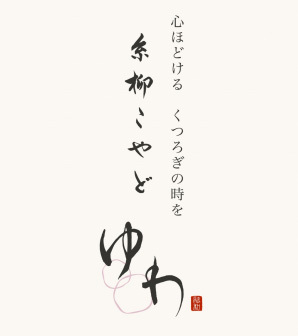 心ほどける　くつろぎの時を
糸柳こやど
ゆわ